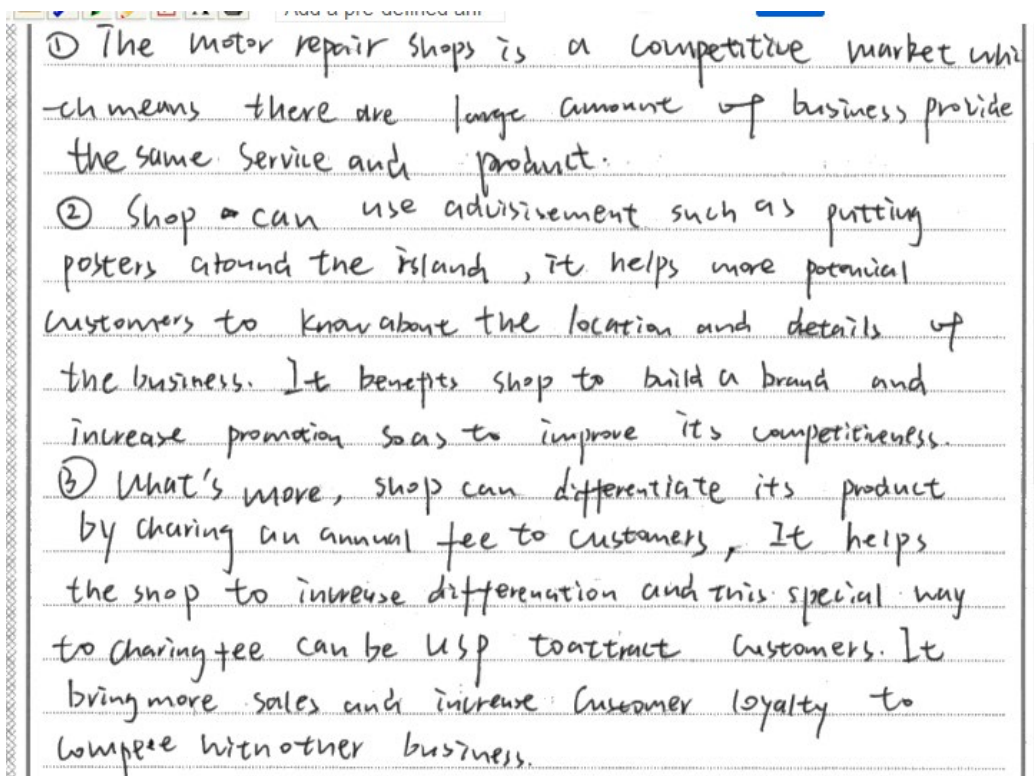 ① The motor repair shops is a competitive market whi
-ch means there are large amount of business provide
the same service and product.
② Shop can use advisisement such as putting
posters around the island, it helps more potenial
customers to know about the location and details of
the business. It benefits shop to build a brand and
increase promotion so as to improve its competitiveness.
③ What's more, shop can differentiate its product
by charing an annual fee to customers, It helps
the shop to increase differenation and this special way
to charing fee can be USP to attract customers. It
bring more sales and increase customer loyalty to
compete with other business.